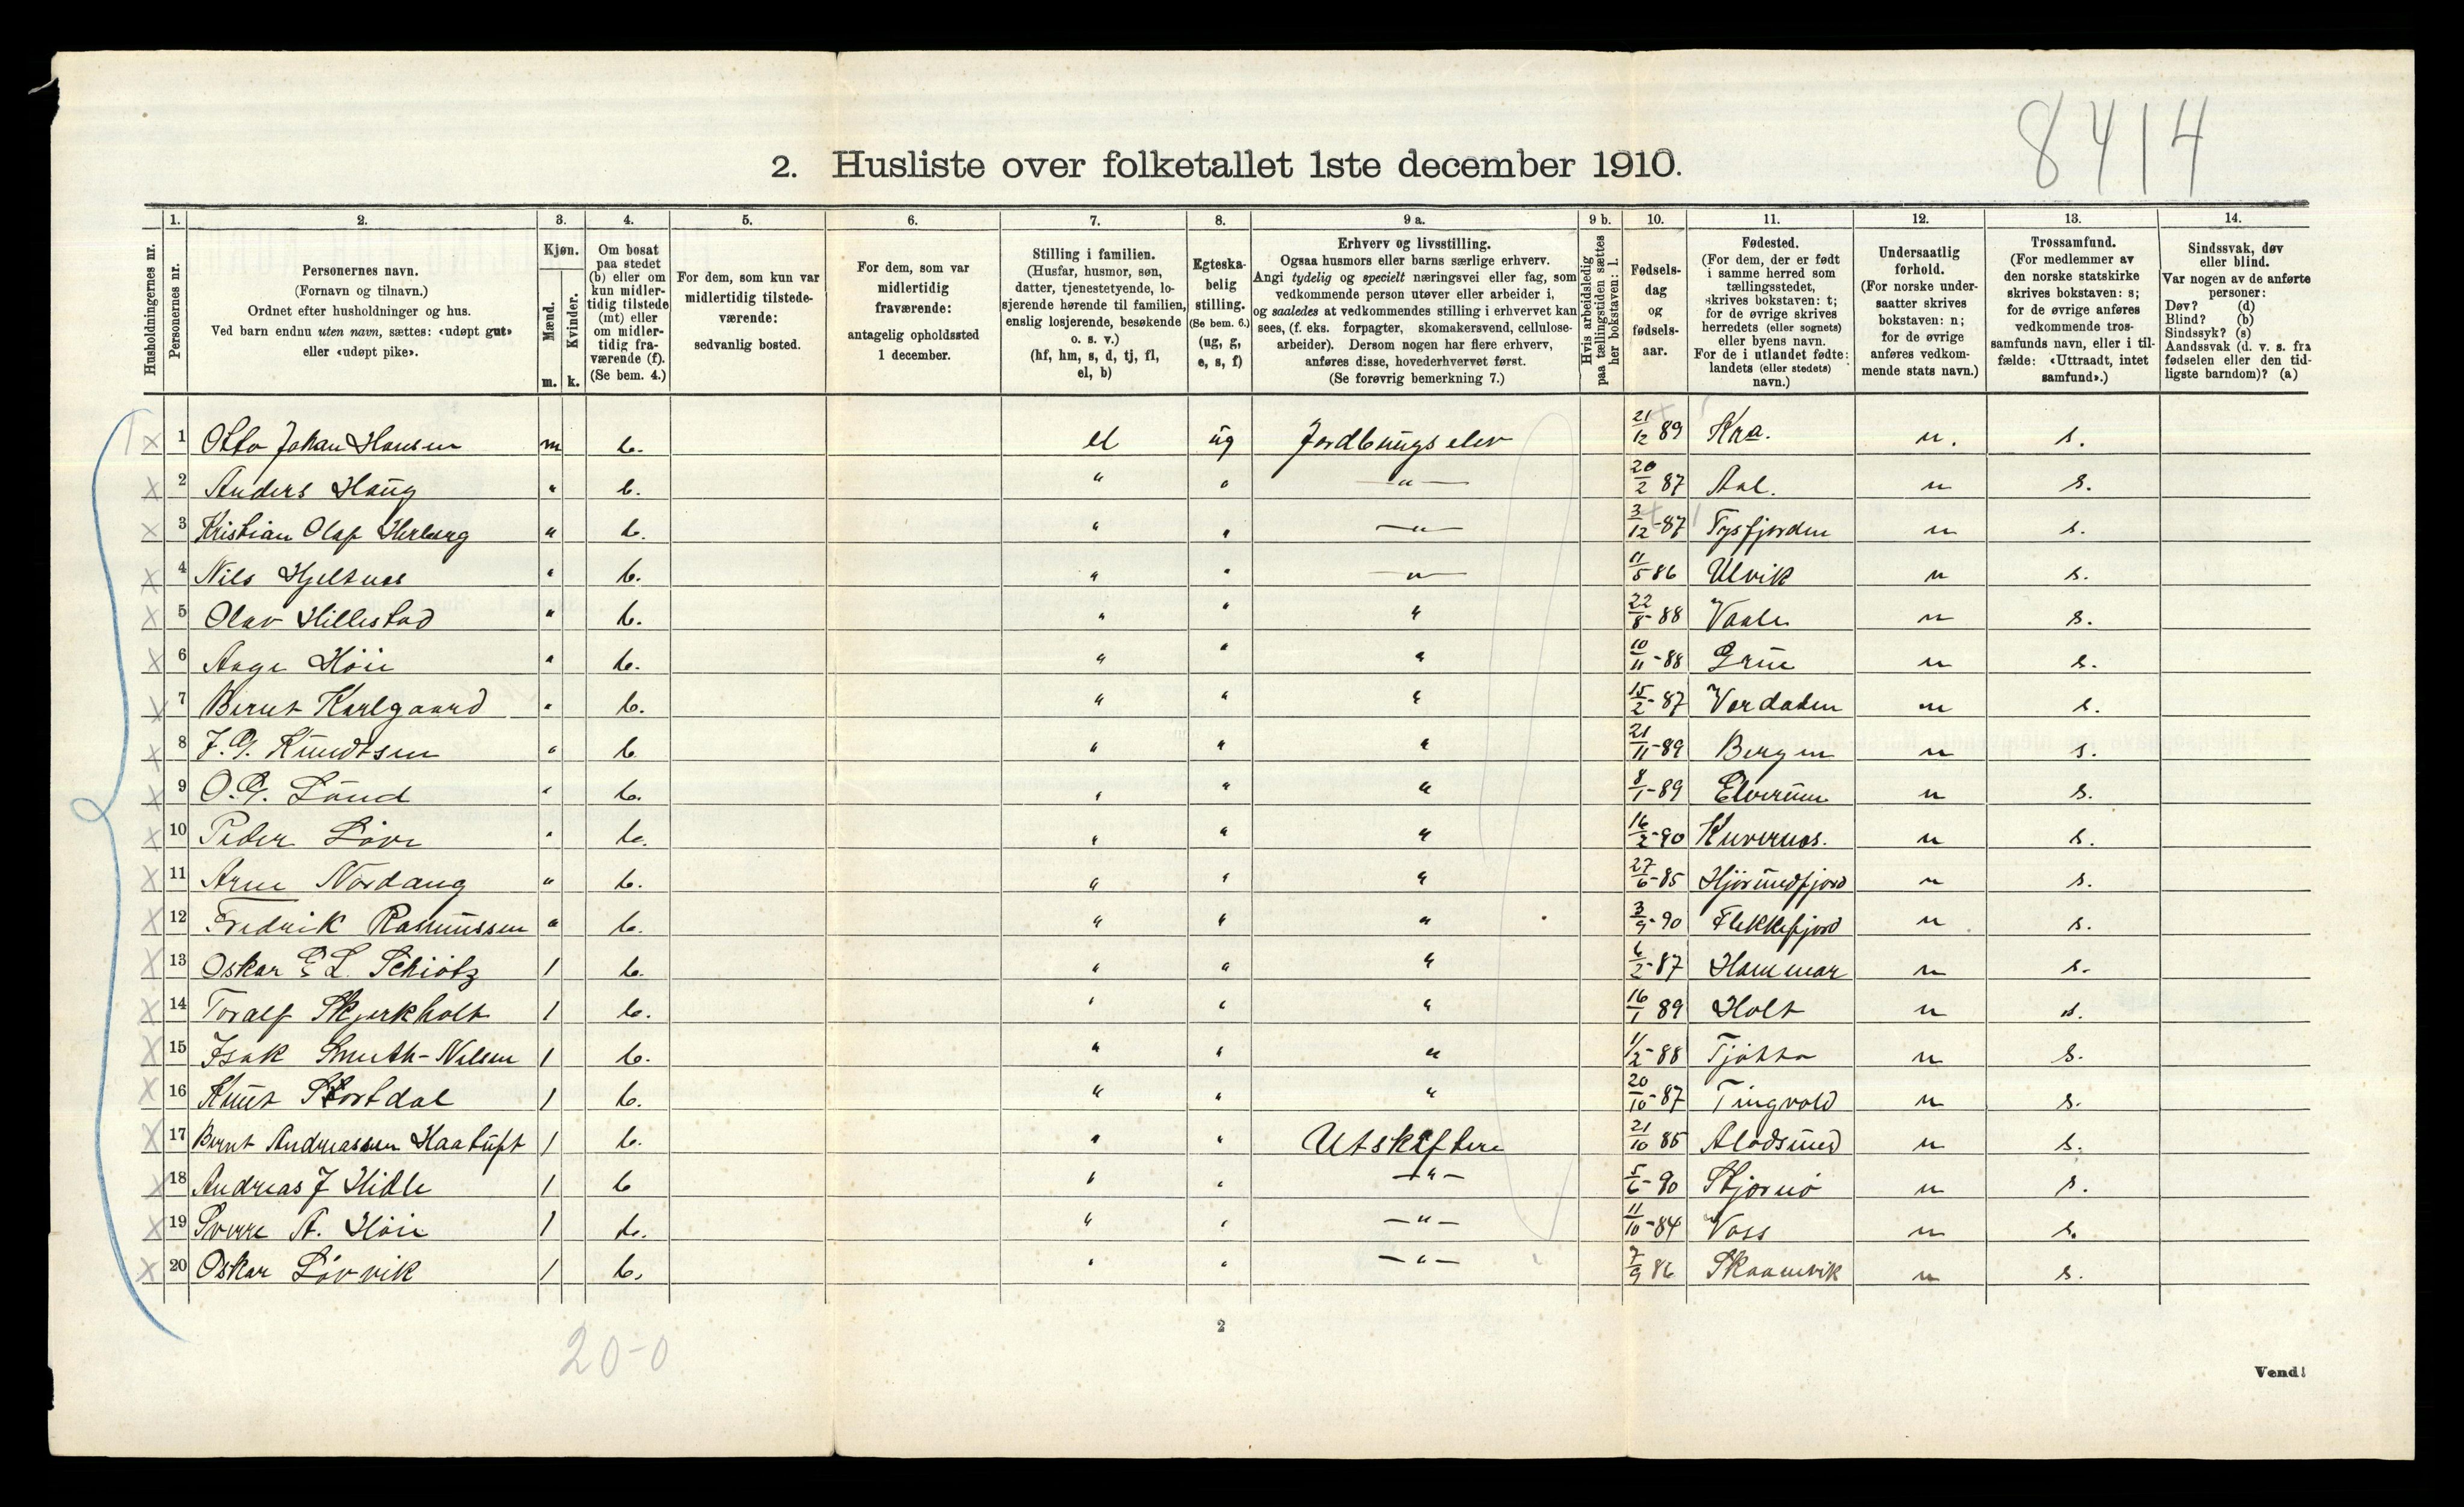 8414
2. Husliste over folketallet 1ste december 1910.
Husholdningernes nr.
1. Personernes nr.
2. Personernes navn. (Fornavn og tilnavn.) Ordnet efter husholdninger og hus. Ved barn endnu uten navn, sættes: «udøpt gut» eller «udøpt pike».
3. Kjøn. Mænd. m. Kvinder. k.
4. Om bosat paa stedet (b) eller om kun midler-tidig tilstede (mt) eller om midler-tidig fra-værende (f). (Se bem. 4.)
5. For dem, som kun var midlertidig tilstede-værende: sedvanlig bosted.
6. For dem, som var midlertidig fraværende: antagelig opholdssted 1 december.
7. Stilling i familien. (Husfar, husmor, søn, datter, tjenestetyende, lo-sjerende hørende til familien, enslig losjerende, besøkende o. s. v.) (hf, hm, s, d, tj, fl, el, b)
8. Egteska-belig stilling. (Se bem. 6.) (ug, g, e, s, f)
9 a. Erhverv og livsstilling. Ogsaa husmors eller barns særlige erhverv. Angi tydelig og specielt næringsvei eller fag, som vedkommende person utøver eller arbeider i, og saaledes at vedkommendes stilling i erhvervet kan sees, (f. eks. forpagter, skomakersvend, cellulose-arbeider). Dersom nogen har flere erhverv, anføres disse, hovederhvervet først. (Se forøvrig bemerkning 7.)
9 b. Hvis arbeidsledig paa tællingstiden sættes her bokstaven: l.
10. Fødsels-dag og fødsels-aar.
11. Fødested. (For dem, der er født i samme herred som tællingsstedet, skrives bokstaven: t; for de øvrige skrives herredets (eller sognets) eller byens navn. For de i utlandet fødte: landets (eller stedets) navn.)
12. Undersaatlig forhold. (For norske under-saatter skrives bokstaven: n; for de øvrige anføres vedkom-mende stats navn.)
13. Trossamfund. (For medlemmer av den norske statskirke skrives bokstaven: s; for de øvrige anføres vedkommende tros-samfunds navn, eller i til-fælde: «Uttraadt, intet samfund».)
14. Sindssvak, døv eller blind. Var nogen av de anførte personer: Døv? (d) Blind? (b) Sindssyk? (s) Aandssvak (d. v. s. fra fødselen eller den tid-ligste barndom)? (a)
1 Otto Johan Hansen m b. el ug Jordbrugselev 21/12 89 Kra. n. s.
2 Anders Haug " b. " " —"— 20/2 87 Aal. n s.
3 Kristian Olaf Herberg " b. " " —"— 3/12-87 Tysfjorden n s.
4 Nils Hjeltnes " b. " " —"— 11/5 86 Ulvik n s.
5 Olav Hillestad " b. " " " 22/8-88 Vaale n s.
6 Aage Höie " b. " " " 10/11-88 Grue n s.
7 Bernt Karlgaard " b. " " " 15/2-87 Verdalen n s.
8 J. G. Knudtsen " b " " " 21/11-89 Bergen n s.
9 O. G. Lund " b. " " " 8/1-89 Elverum n s.
10 Peder Löve " b. " " " 16/2-90 Kvernes. n s.
11 Arne Nordang " b. " " " 27/6-85 Hjörundfjord n s.
12 Fredrik Rasmussen " b. " " " 3/9-90 Flekkefjord n s.
13 Oskar E L. Schiötz 1 b. " " " 6/2-87 Hammar n s.
14 Toralf Skjerkholt 1 b. " " " 16/1 89 Holt n s.
15 Isak Smith-Nilsen 1 b. " " " 11/2-88 Tjötta n s.
16 Knut Stortdal 1 b. " " " 20/10-87 Tingvold n s.
17 Bernt Andreassen Haatuft 1 b. " " Utskiftere 21/10 85 n s.
18 Andreas J Hidle 1 b " " —"— 5/6-90 n s.
19 Sverre A. Höie 1 b. " " —"— 11/10-84 Voss n s.
20 Oskar Lövvik 1 b. " " —"— 7/9 86 Skaanevik n s.
20-0
2
Vend!